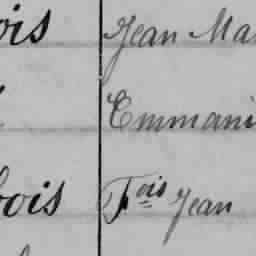 ois Jean Ma
Emmani
ois Fois Jean